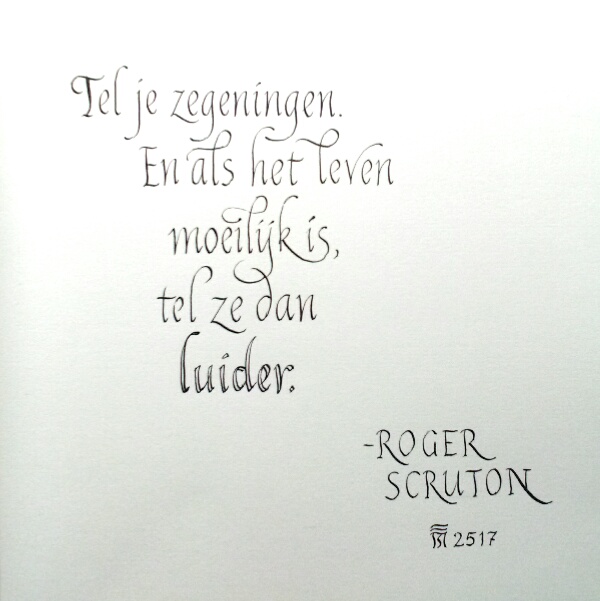 Tel je zegeningen.
En als het leven
moeilijk is,
tel ze dan
luider.
-ROGER
SCRUTON
2517